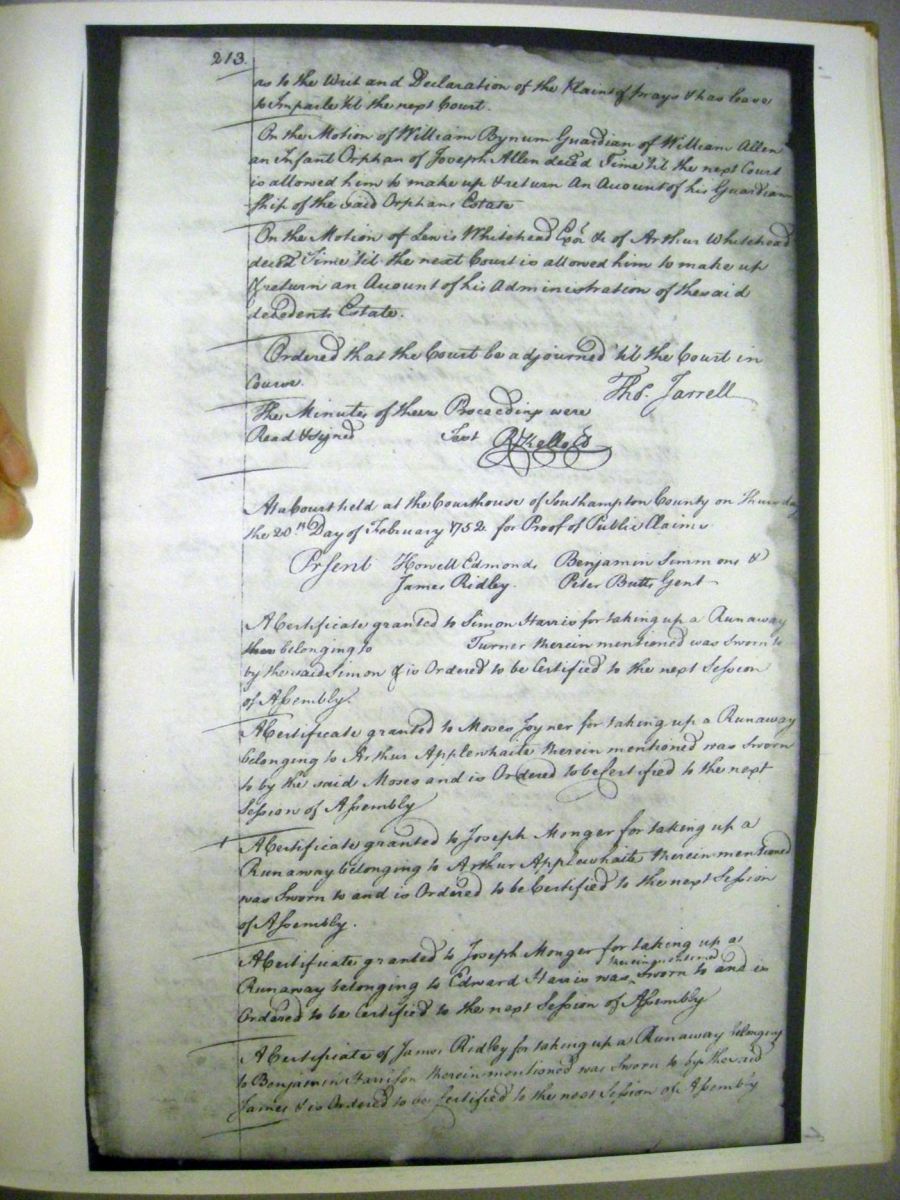 213.
as to the Writ and Declaration of the Plaintif prays & has leave
to Imparle 'til the next Court.
On the Motion of William Bynum Guardian of William Allen
an Infant Orphan of Joseph Allen deced Time 'til the next Court
is allowed him to make up & return An Account of his Guardian
ship of the said Orphans Estate
On the Motion of Lewis Whitehead Exor &c of Arthur Whitehead
deced Time 'til the next Court is allowed him to make up
& return an Account of his Administration of the said
decedents Estate.
Ordered that the Court be adjourned 'til the Court in
Course.
Thos. Jarrell
The Minutes of these Proceedings were
Read & signed Test R Kello Cl
At a Court held at the Courthouse of Southampton County on Thursday
the 20th Day of February 1752 for Proof of Public Claims
Prsent Howell Edmonds Benjamin Simmons &
James Ridley. Peter Butts Gent
A Certificate granted to Simon Harris for taking up a Runaway
belonging to Turner therein mentioned was Sworn to
by the said Simon & is Ordered to be Certified to the next Session
of Assembly.
A Certificate granted to Moses Joyner for taking up a Runaway
belonging to Arthur Applewhaite therein mentioned was Sworn
to by the said Moses and is Ordered to be Certified to the next
Session of Assembly
A Certificate granted to Joseph Monger for taking up a
Runaway belonging to Arthur Applewhaite therein mentioned
was Sworn to and is Ordered to be Certified to the next Session
of Assembly.
A Certificate granted to Joseph Monger for taking up a
Runaway belonging to Edward Harris therein mentioned was Sworn to and is
Ordered to be Certified to the next Session of Assembly
A Certificate of James Ridley for taking up a Runaway belonging
to Benjamin Harrison therein mentioned was Sworn to by the said
James & is Ordered to be Certified to the next Session of Assembly